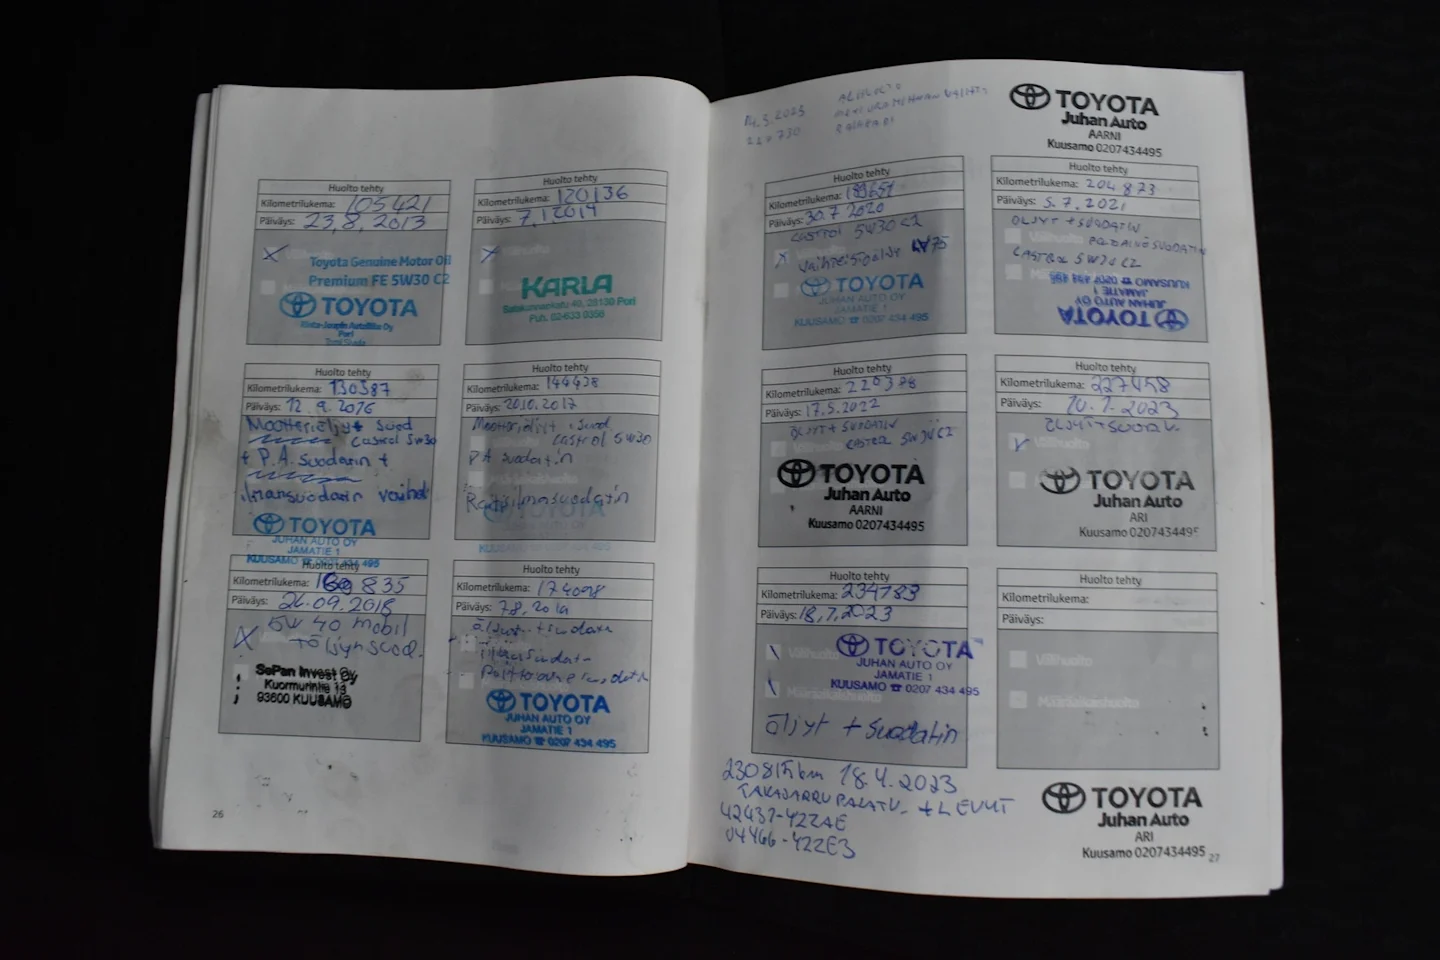 Huolto tehty
Kilometrilukema: 105421
Päiväys: 23,8,2013
Toyota Genuine Motor Oil
Premium FE 5W30 C2
TOYOTA
Pori
Huolto tehty
Kilometrilukema: 120136
Päiväys: 7,1 2014
KARLA
Satakunnankatu 40, 28130 Pori
Puh. 02-633 0356
Huolto tehty
Kilometrilukema: 130387
Päiväys: 12.9.2016
Moottoriöljyt suod
castrol 5w30
+ P.A. Suodatin +
ilmansuodatin vaihdet
TOYOTA
JUHAN AUTO OY
JAMATIE 1
KUUSAMO ☎ 0207 434 495
Huolto tehty
Kilometrilukema: 144428
Päiväys: 20.10.2017
Moottoriöljyt + suod
castrol 5W30
PA suodatin
Raitisilmasuodatin
TOYOTA
KUUSAMO ☎ 0207 434 495
Huolto tehty
Kilometrilukema: 835
Päiväys: 26.09.2018
5W 40 mobil
+ öljynsuod.
SePan Invest Oy
Kuormurintie 13
93600 KUUSAMO
Huolto tehty
Kilometrilukema: 174098
Päiväys: 7.8.2019
Öljyt + suodatin
TOYOTA
JUHAN AUTO OY
JAMATIE 1
KUUSAMO ☎ 0207 434 495
26
14.3.2023
220730
TOYOTA
Juhan Auto
AARNI
Kuusamo 0207434495
Huolto tehty
Kilometrilukema: 189651
Päiväys: 30.7.2020
CASTROL 5W30 C2
Vaihteistoöljy 75
TOYOTA
JUHAN AUTO OY
JAMATIE 1
KUUSAMO ☎ 0207 434 495
Huolto tehty
Kilometrilukema: 204873
Päiväys: 5.7.2021
ÖLJYT + SUODATIN
POLTTOAINESUODATIN
CASTROL 5W30 C2
KUUSAMO ☎ 0207 434 495
JAMATIE 1
JUHAN AUTO OY
TOYOTA
Huolto tehty
Kilometrilukema: 220388
Päiväys: 17.5.2022
ÖLJYT + SUODATIN
CASTROL 5W30 C2
TOYOTA
Juhan Auto
AARNI
Kuusamo 0207434495
Huolto tehty
Kilometrilukema: 227458
Päiväys: 10.1.2023
ÖLJYT + SUODAT.
TOYOTA
Juhan Auto
ARI
Kuusamo 0207434495
Huolto tehty
Kilometrilukema: 234783
Päiväys: 18,7,2023
Välihuolto
Määräaikaishuolto
TOYOTA
JUHAN AUTO OY
JAMATIE 1
KUUSAMO ☎ 0207 434 495
öljyt + suodatin
Huolto tehty
Kilometrilukema:
Päiväys:
Välihuolto
Määräaikaishuolto
230815 km 18.4.2023
TAKAJARRUPALAT U. + LEVYT
42431-42ZAE
04466-42ZE3
TOYOTA
Juhan Auto
ARI
Kuusamo 0207434495
27